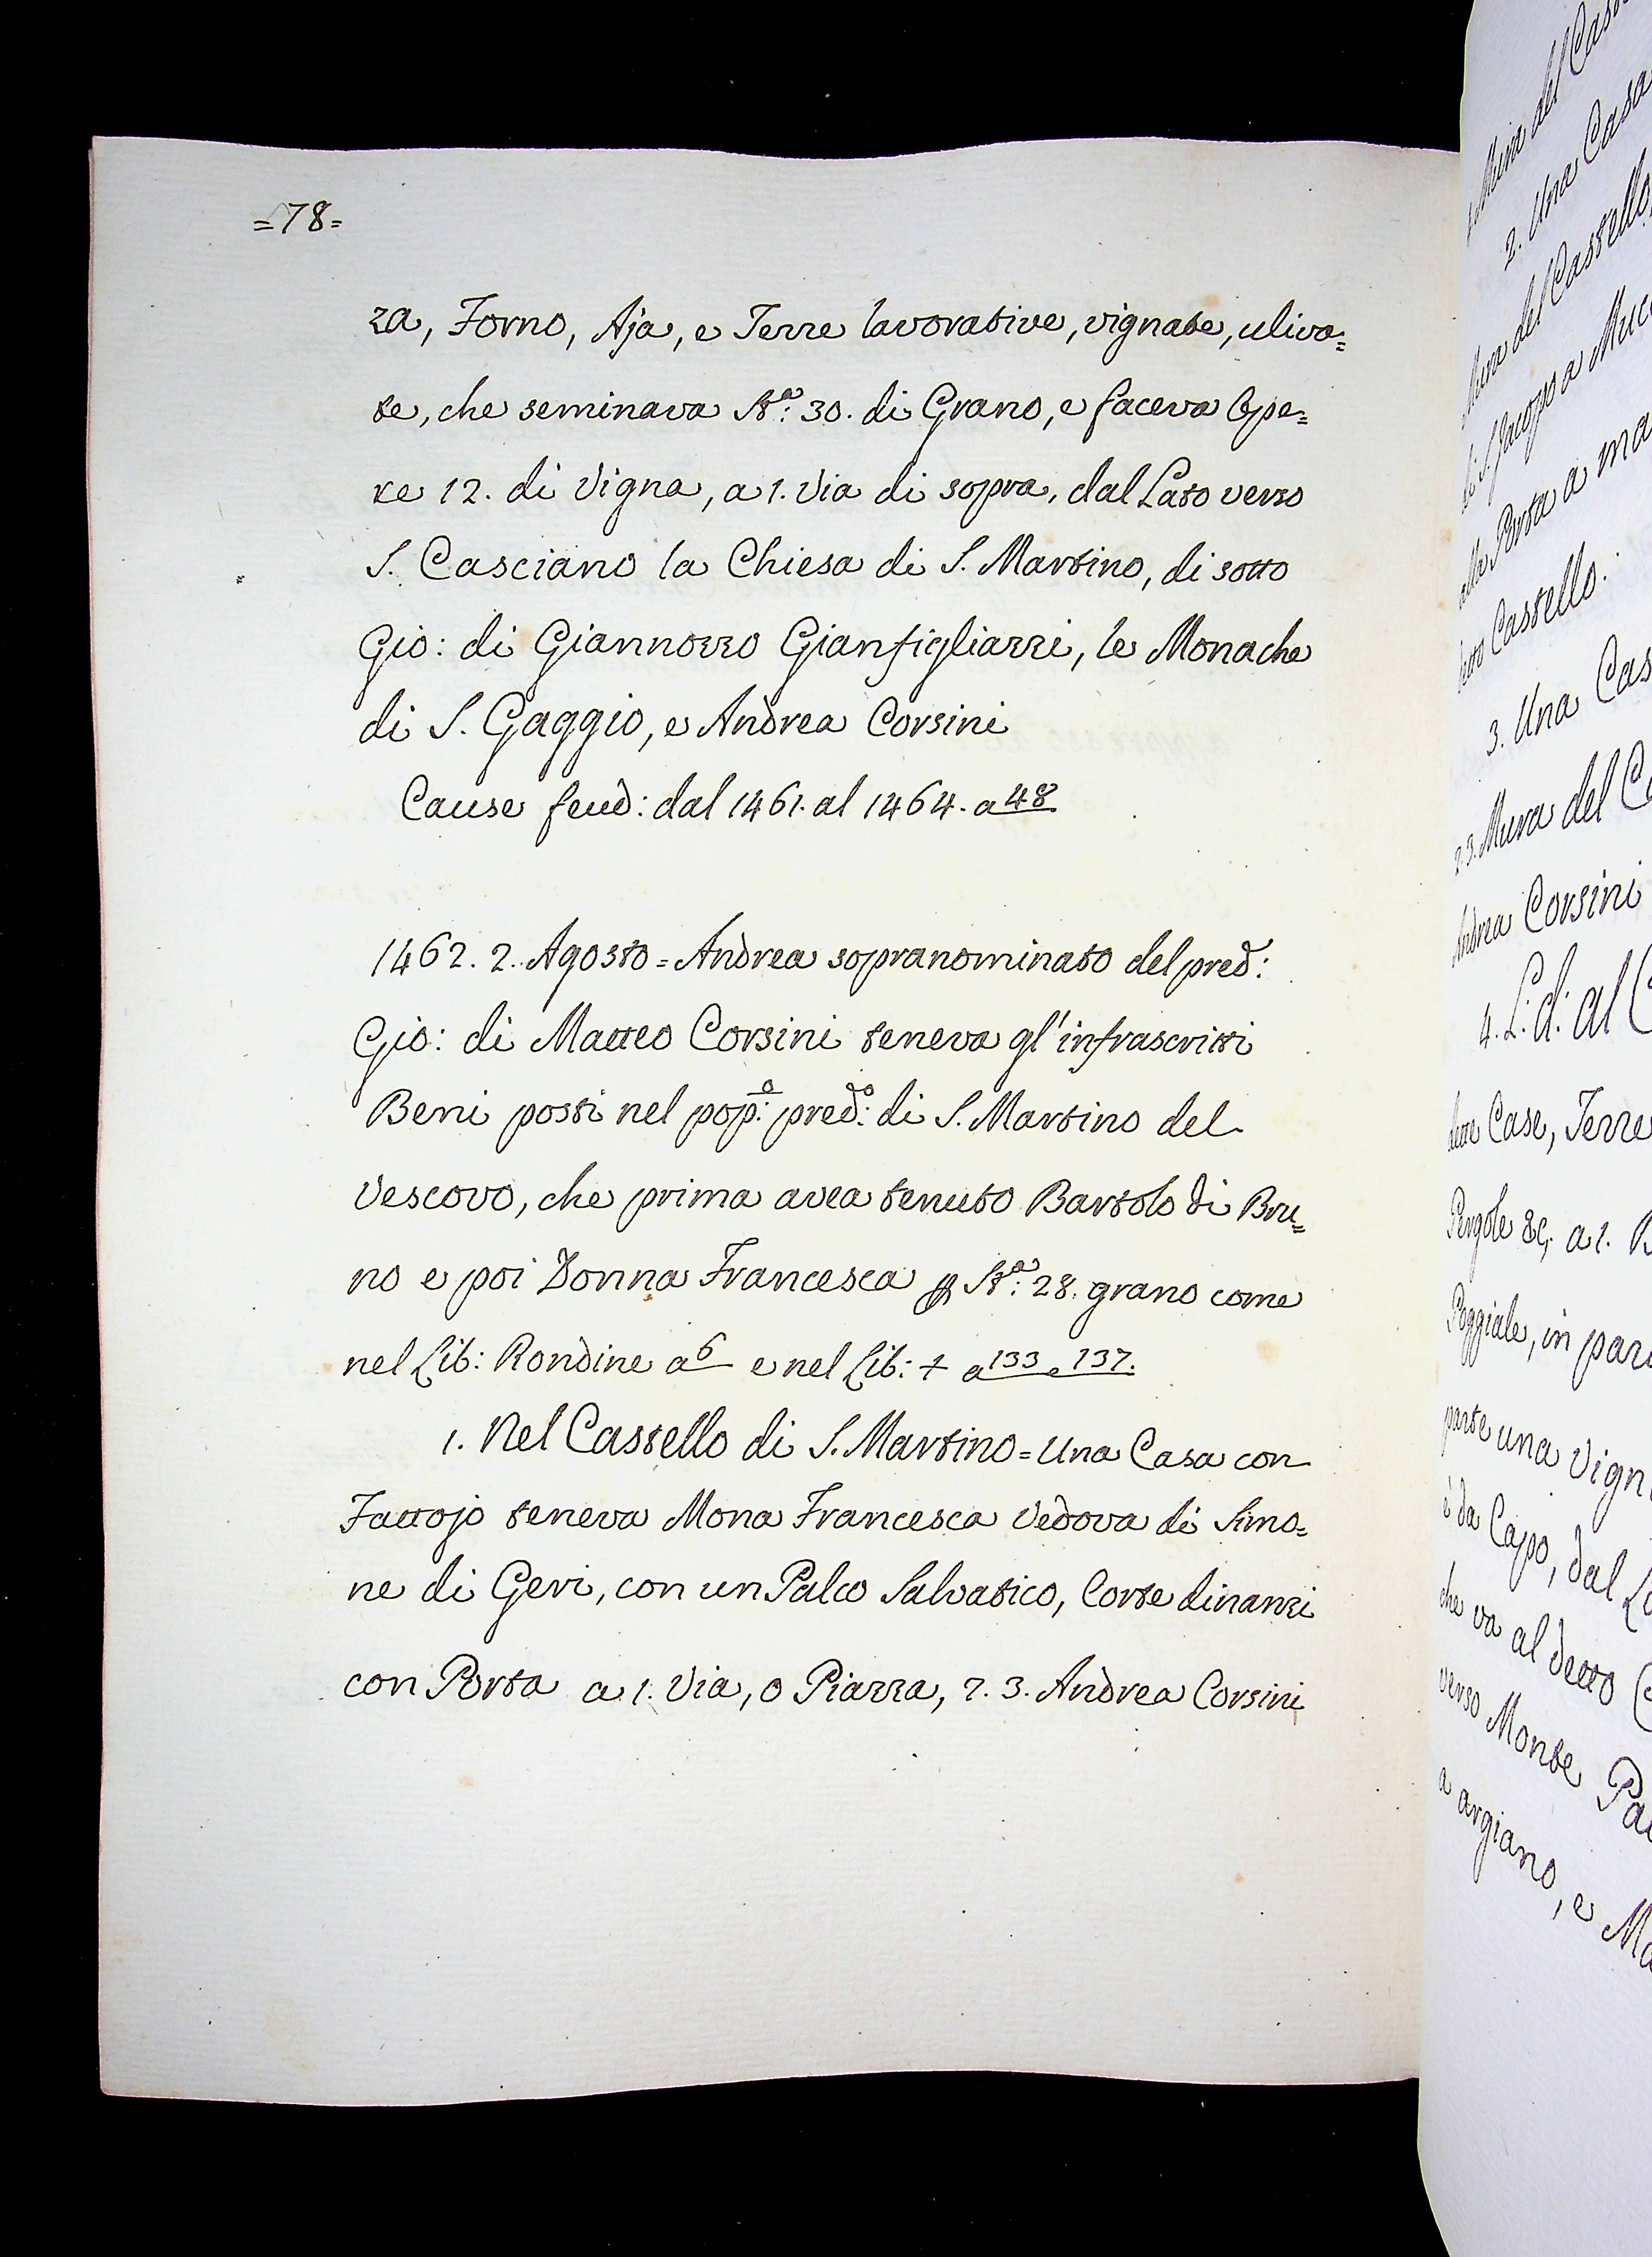 =78=
za, Forno, Aja, e Terre lavorative, vignate, uliva=
te, che seminava St.a: 30. di Grano, e faceva Ope=
re 12. di Vigna, a 1. Via di sopra, dal Lato verso
S. Casciano la Chiesa di S. Martino, di sotto
Gio: di Giannozzo Gianfigliazzi, le Monache
di S. Gaggio, e Andrea Corsini
Cause feud: dal 1461. al 1464. a 48
1462. 2. Agosto = Andrea sopranominato del pred:
Gio: di Matteo Corsini teneva gl'infrascritti
Beni posti nel pop:o pred:o di S. Martino del
Vescovo, che prima avea tenuto Bartolo di Bru=
no e poi Donna Francesca p St.a: 28. grano come
nel Lib: Rondine a 6 e nel Lib: + a 133 e 137.
1. Nel Castello di S. Martino = Una Casa con
Fattojo teneva Mona Francesca Vedova di Simo=
ne di Geri, con un Palco Salvatico, Corte dinanzi
con Porta a 1. Via, o Piazza, 2. 3. Andrea Corsini
Mura del
2. Una Casa
Mura del Castello,
di S. Jacopo a
alla Porta a
Castello.
3. Una
2.3. Mura del
Andrea Corsini
4. L: d: al
dette Case, Terre
Pergole &c; a 1.
Poggiale, in
parte una
è da Capo, dal
che va al detto
verso Monte
a argiano, e